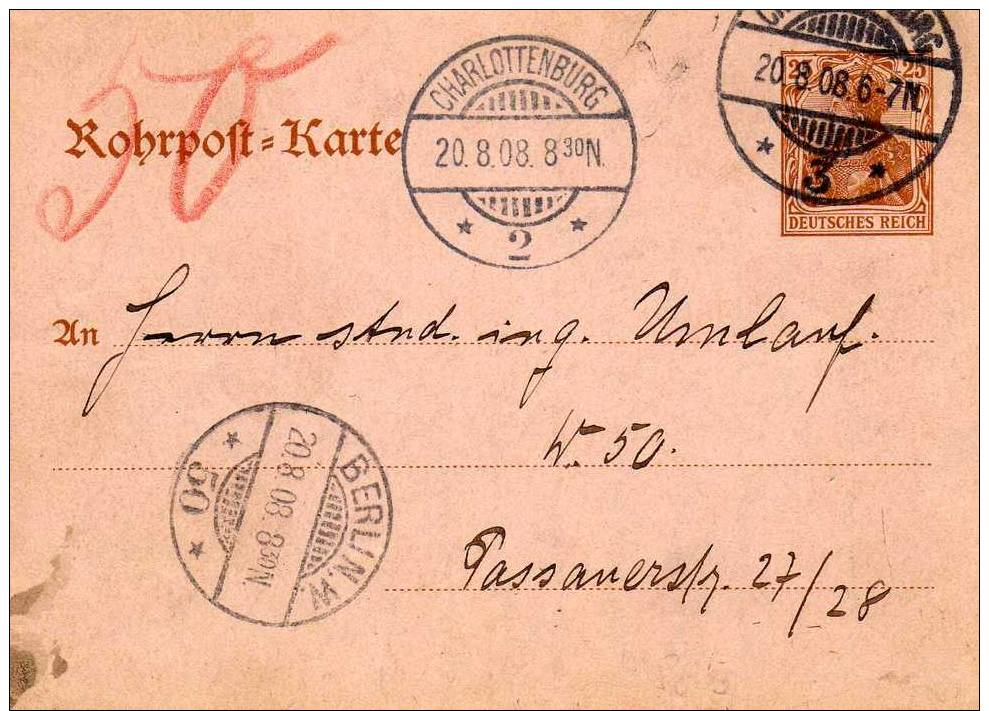 50
Rohrpost=Karte
CHARLOTTENBURG
20.8.08. 8 30N.
* 2 *
20.8.08. 6-7N.
* 3 *
25
DEUTSCHES REICH
An Herrn stud. ing. Umlauf.
W. 50.
Passauerstr. 27/28
BERLIN.W.
20.8.08. 8 30N
* 50 *